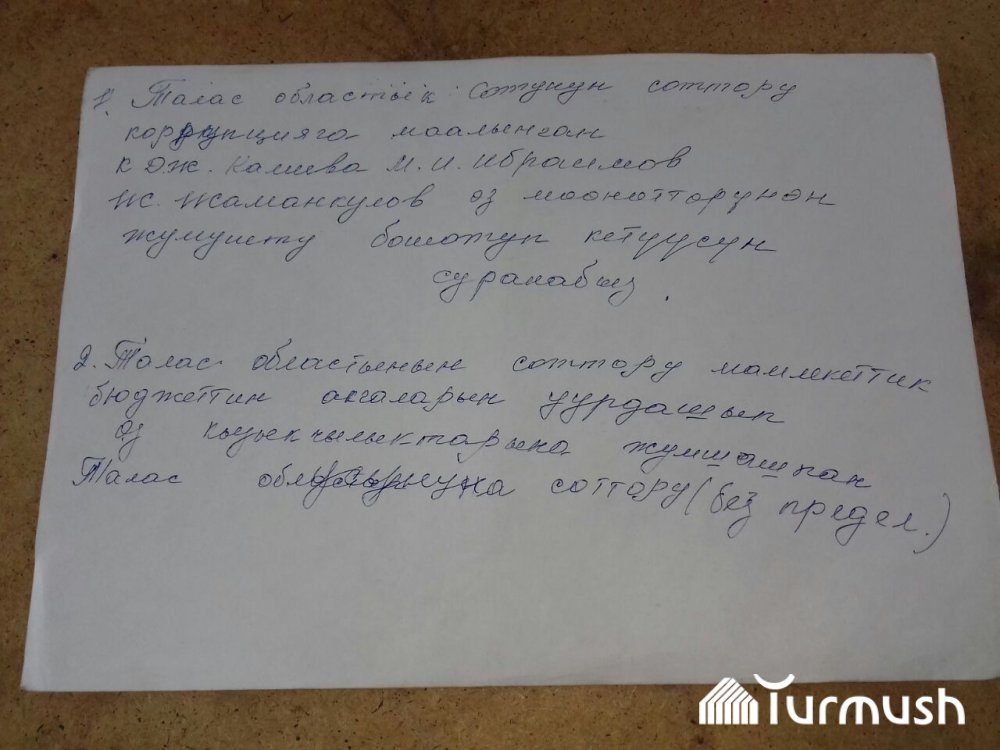 1. Талас областык сотунун соттору
коррупцияга маалынган
К ЭЖ. Калиева М. И. Ибраимов
Ж. Жаманкулов өз мөөнөттөрүнөн
жумушту бошотуп кетүүсүн
суранабыз.
2. Талас областынын соттору мамлекеттик
бюджеттин акчаларын уурдашып
өз кызыкчылыктарына жумшашкан
Талас соттору (без предел.)
Turmush